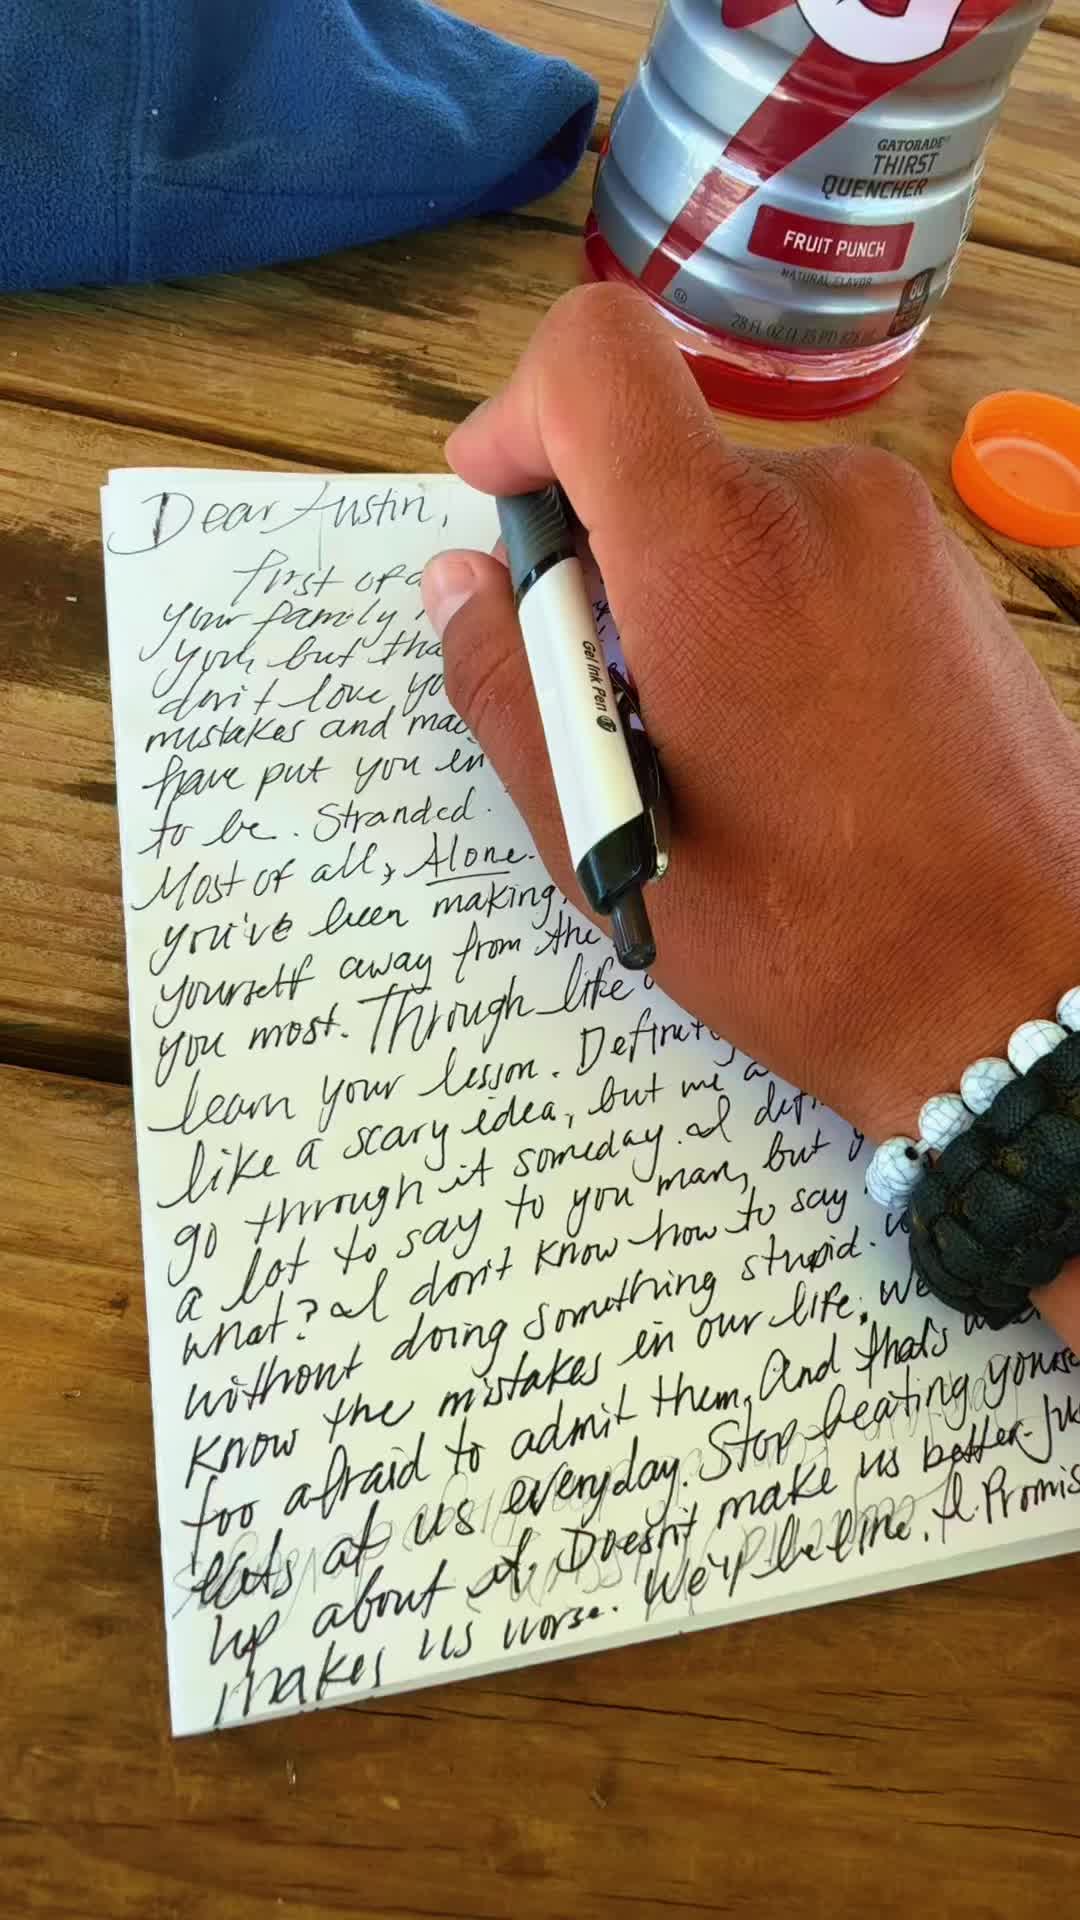 GATORADE
THIRST
QUENCHER
FRUIT PUNCH
NATURAL FLAVOR
28 FL OZ
Gel Ink Pen
Dear Austin,
First of a
your family
you, but tha
don't love yo
mistakes and mad
have put you in
to be. Stranded.
Most of all, Alone.
you've been making,
yourself away from the
you most. Through life
learn your lesson. Definitely
like a scary idea, but me a
go through it someday. I defin
a lot to say to you man, but y
what? I don't know how to say
without doing something stupid. 
know the mistakes in our life, We
too afraid to admit them. And that's what
eats at us everyday. Stop beating yourse
up about it. Doesn't make us better. Jus
makes us worse. We'll be fine. I Promis